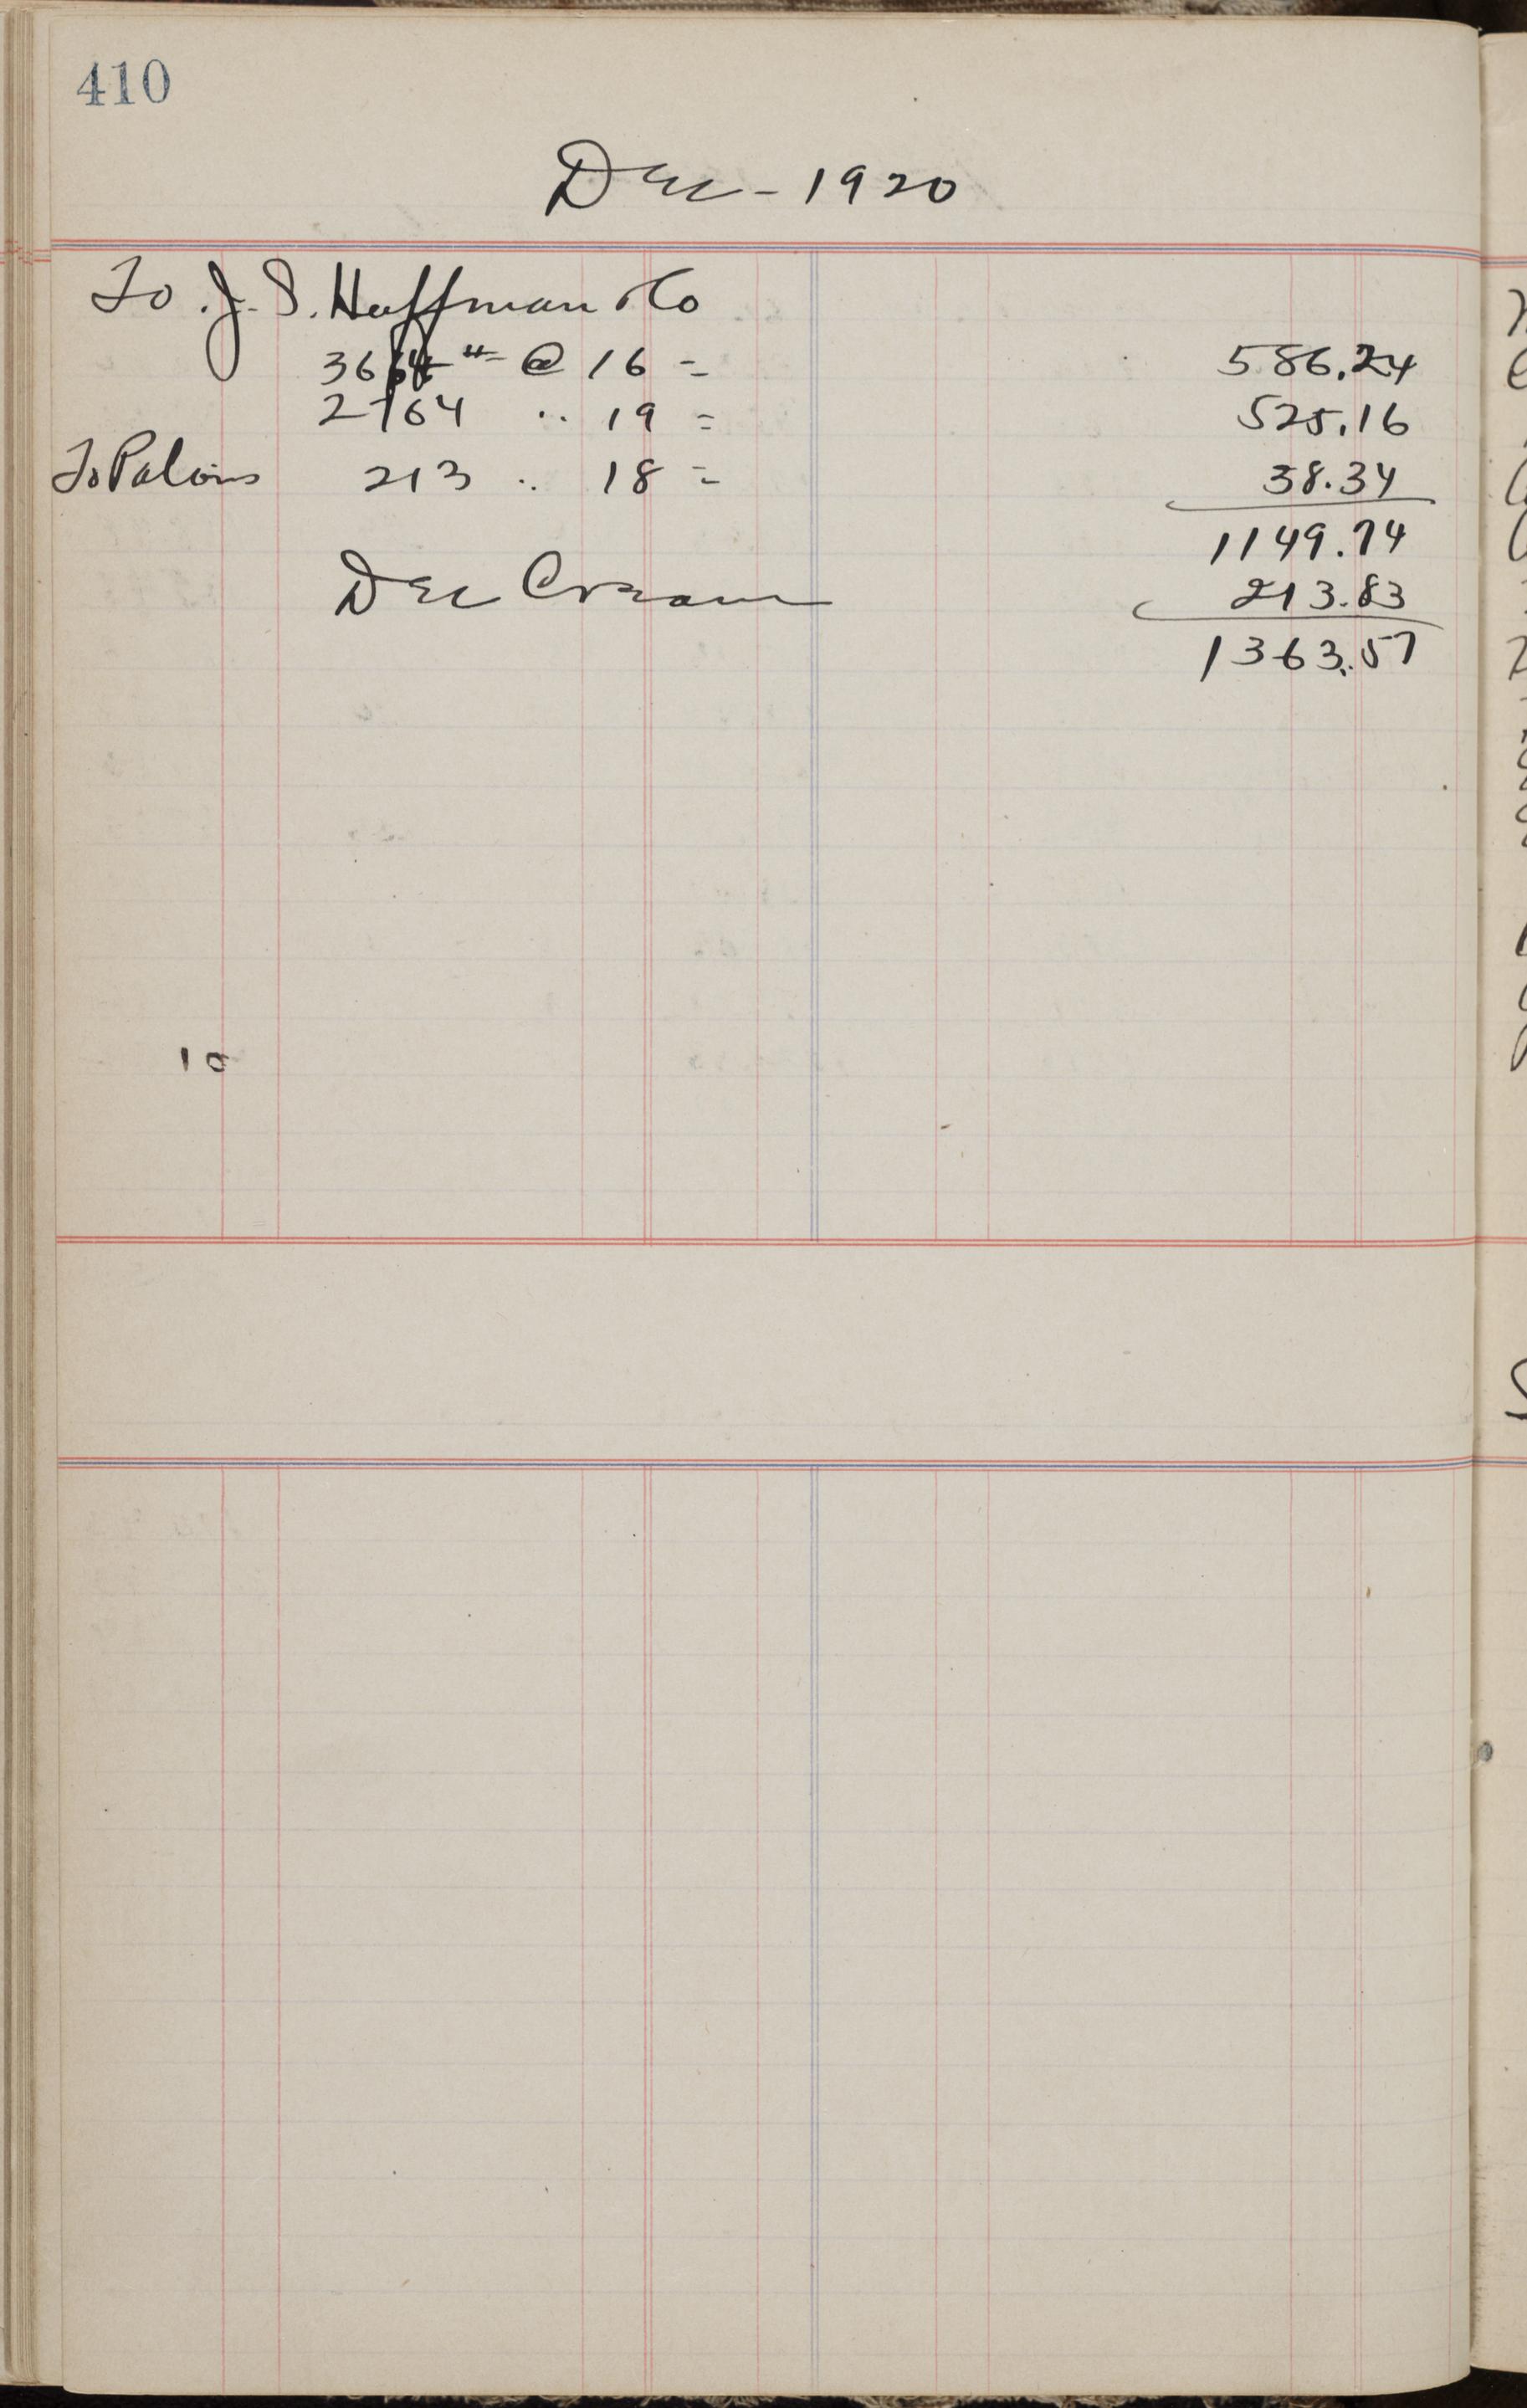 410
Dec - 1920
To J. S. Hoffman & Co
3664 # @ 16 = 586.24
2764 .. 19 = 525.16
To Patrons 213 .. 18 = 38.34
1149.74
Dec Cream 213.83
1363.57
10